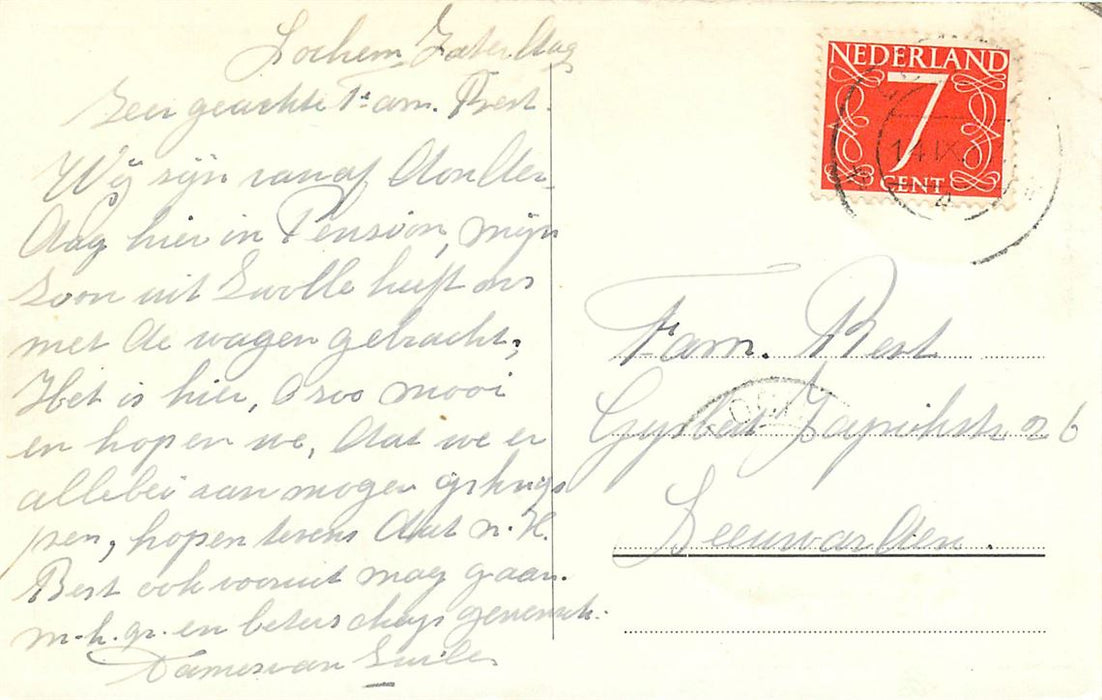 Lochem Zaterdag
Zeer geachte Fam. Best.
Wij zijn vanaf Donder-
dag hier in Pension, mijn
zoon uit Zwolle heeft ons
met de wagen gebracht,
Het is hier, o zoo mooi
en hopen we, dat we er
allebei van mogen
hopen tevens dat v. H.
Best ook vooruit mag gaan.
m.h.gr. en beterschaps gewensch.
Dames van
NEDERLAND
7
CENT
14 IX
Fam. Best
Gysbert Japickstr 26
Leeuwarden.